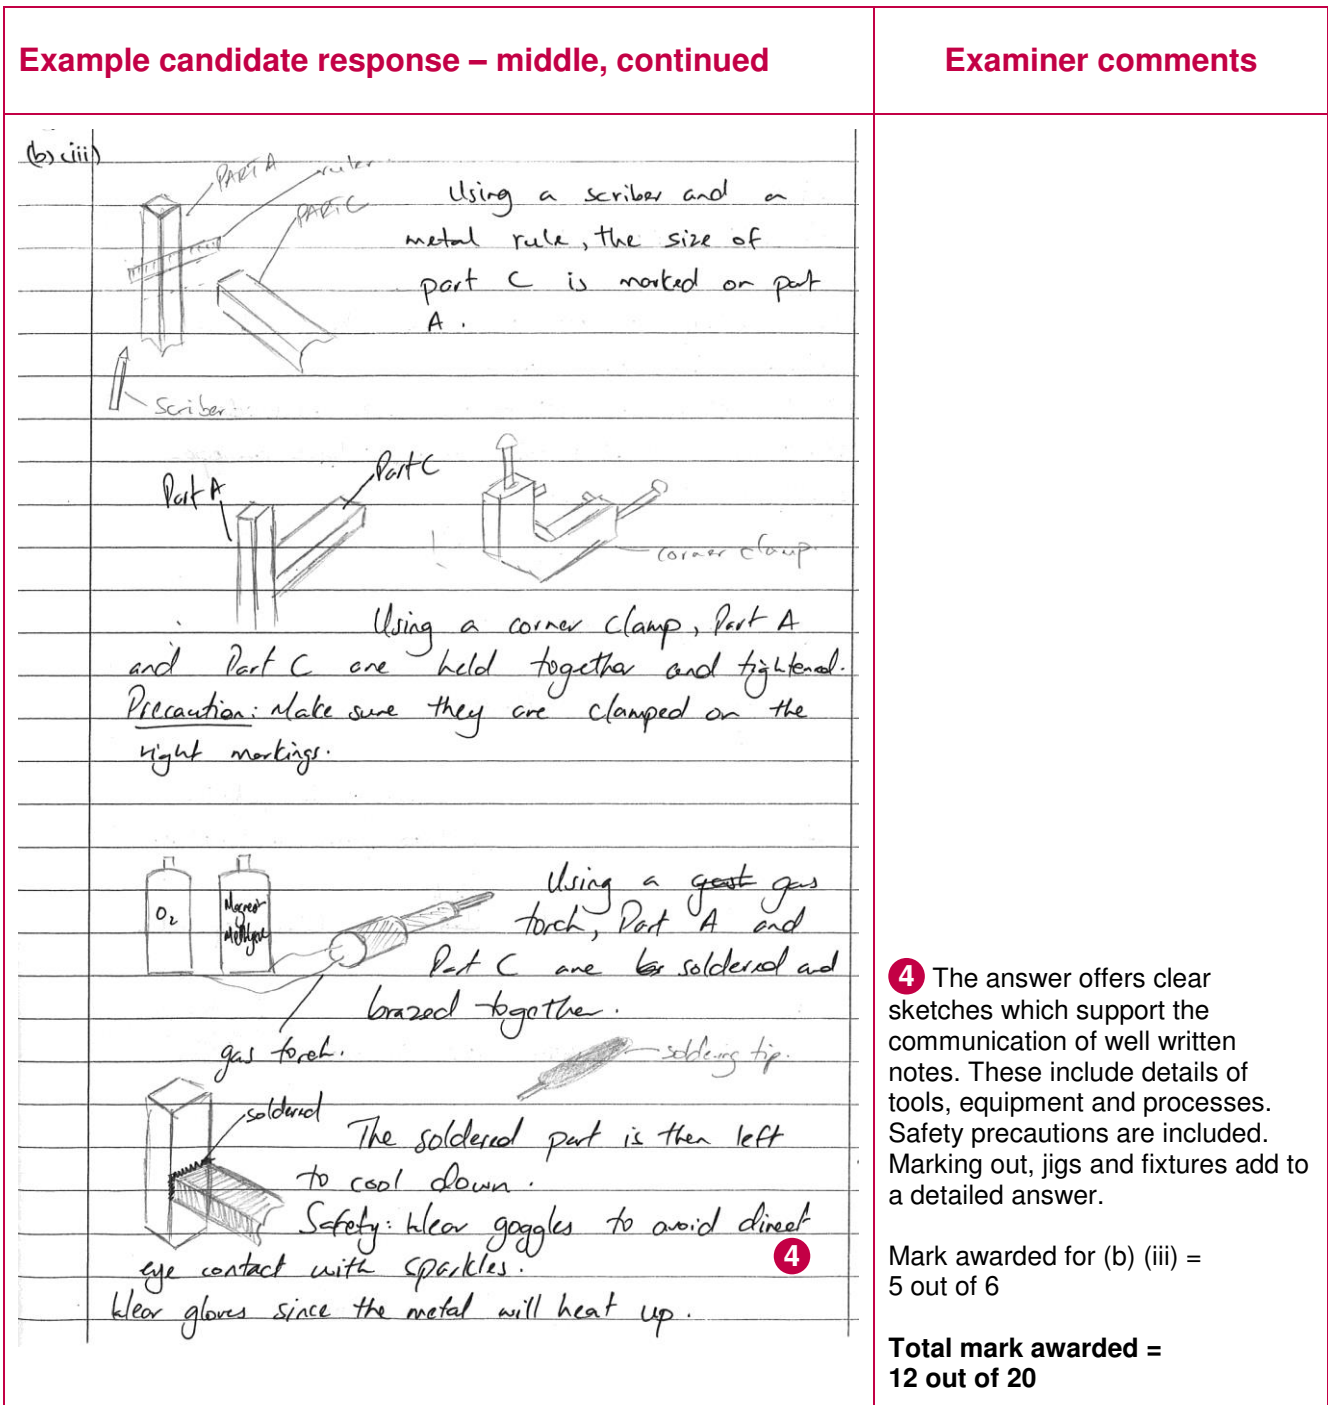 Example candidate response – middle, continued
Examiner comments
(b) (iii)
PART A
ruler
PART C
Using a scriber and a
metal rule, the size of
part C is marked on part
A.
scriber
Part A
Part C
corner clamp
Using a corner clamp, Part A
and Part C are held together and tightened.
Precaution: Make sure they are clamped on the
right markings.
O2
Using a gas
torch, Part A and
Part C are soldered and
brazed together.
gas torch.
soldering tip.
soldered
The soldered part is then left
to cool down.
Safety: Wear goggles to avoid direct
eye contact with sparkles.
4
Wear gloves since the metal will heat up.
4 The answer offers clear
sketches which support the
communication of well written
notes. These include details of
tools, equipment and processes.
Safety precautions are included.
Marking out, jigs and fixtures add to
a detailed answer.
Mark awarded for (b) (iii) =
5 out of 6
Total mark awarded =
12 out of 20